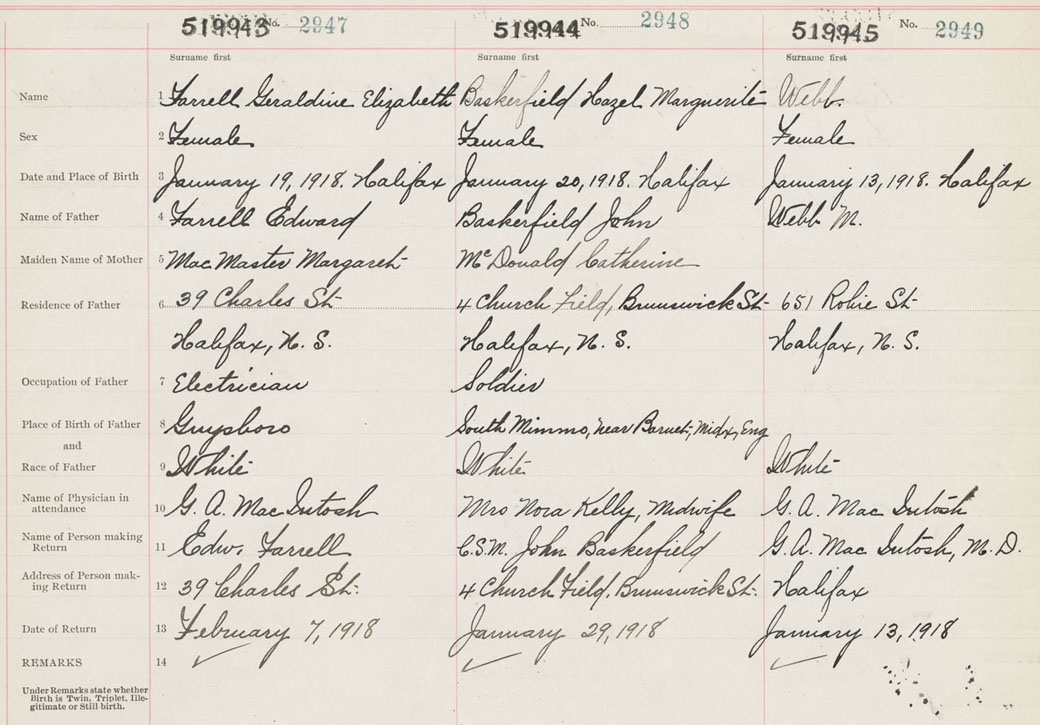 519943 No. 2947 519944 No. 2948 519945 No. 2949
Surname first Surname first Surname first
Name 1 Farrell Geraldine Elizabeth Baskerfield Hazel Marguerite Webb.
Sex 2 Female Female Female
Date and Place of Birth 3 January 19, 1918. Halifax January 20, 1918. Halifax January 13, 1918. Halifax
Name of Father 4 Farrell Edward Baskerfield John Webb M.
Maiden Name of Mother 5 MacMaster Margaret McDonald Catherine
Residence of Father 6 39 Charles St. 4 Church Field, Brunswick St. 651 Robie St.
Halifax, N. S. Halifax, N. S. Halifax, N. S.
Occupation of Father 7 Electrician Soldier
Place of Birth of Father 8 Guysboro South Mimms, near Barnet, Midx, Eng
and
Race of Father 9 White White White
Name of Physician in
attendance 10 G. A. MacIntosh Mrs Nora Kelly, Midwife G. A. MacIntosh
Name of Person making
Return 11 Edw. Farrell C.S.M. John Baskerfield G. A. MacIntosh, M.D.
Address of Person mak-
ing Return 12 39 Charles St. 4 Church Field, Brunswick St. Halifax
Date of Return 13 February 7, 1918 January 29, 1918 January 13, 1918
REMARKS 14
Under Remarks state whether
Birth is Twin, Triplet, Ille-
gitimate or Still birth.